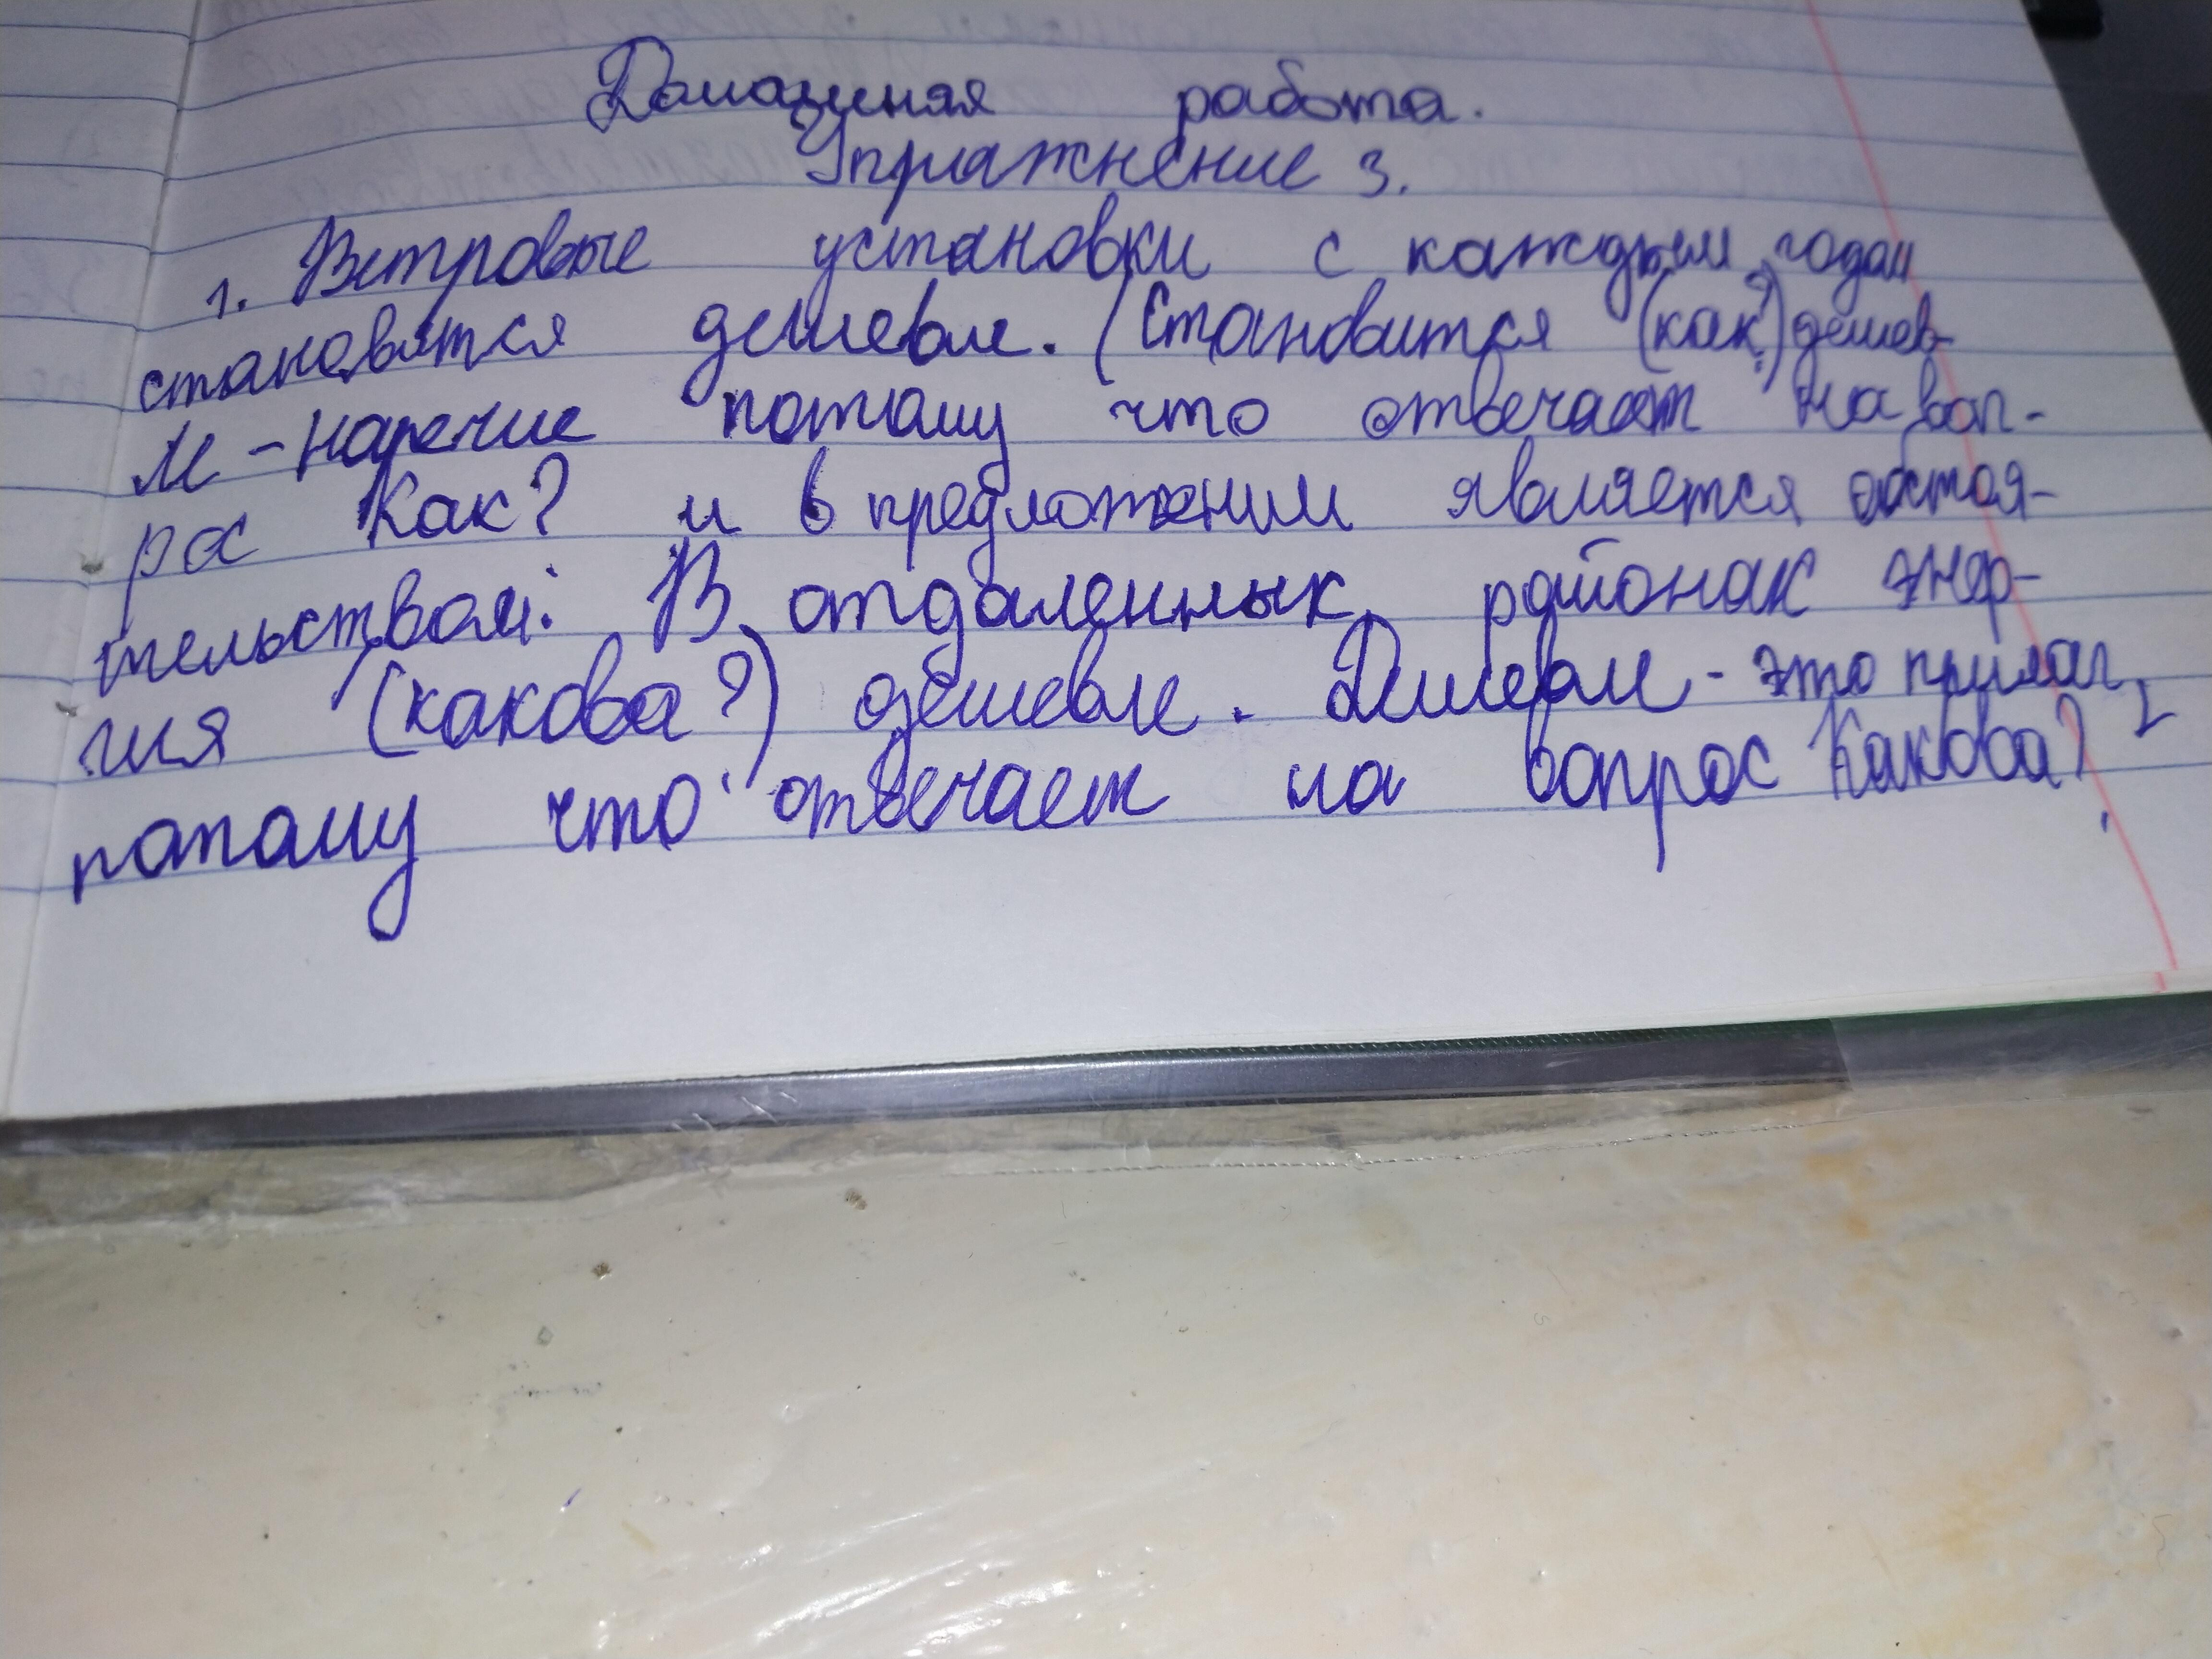 Домашняя работа.
Упражнение 3.
1. Ветровые установки с каждым годом
становятся дешевле. (Становится (как?) дешев-
ле - наречие потому что отвечает на воп-
рос Как? и в предложении является обстоя-
тельством. В отдаленных районах энер-
гия (какова?) дешевле. Дешевле - это прилаг,
потому что отвечает на вопрос Какова?